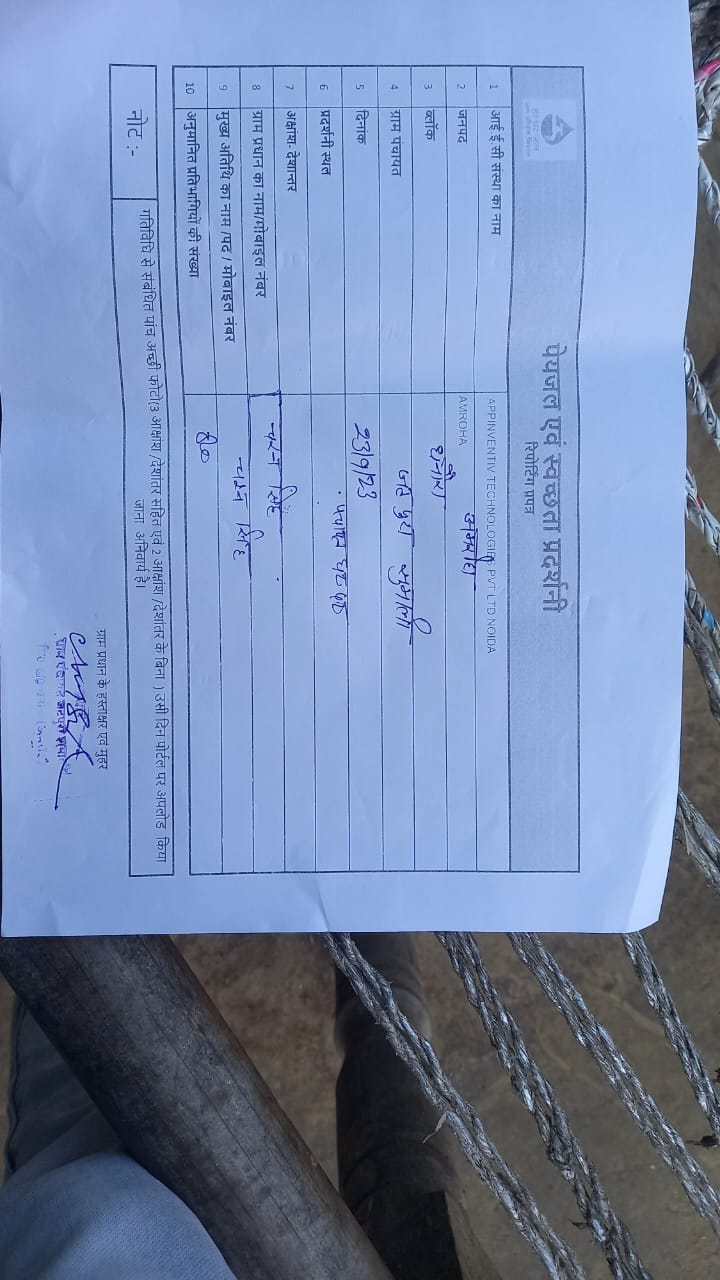 पेयजल एवं स्वच्छता प्रदर्शनी
रिपोर्टिंग प्रपत्र
1 आई ई सी संस्था का नाम APPINVENTIV TECHNOLOGIES PVT LTD NOIDA
2 जनपद AMROHA अमरोहा
3 ब्लॉक
4 ग्राम पंचायत
5 दिनांक 23/9/23
6 प्रदर्शनी स्थल पंचायत घर
7 अक्षांश-देशान्तर
8 ग्राम प्रधान का नाम/मोबाइल नंबर सिंह
9 मुख्य अतिथि का नाम /पद / मोबाइल नंबर सिंह
10 अनुमानित प्रतिभागियों की संख्या
नोट :- गतिविधि से संबंधित पांच अच्छी फोटो(3 आक्षांश /देशांतर सहित एवं 2 आक्षांश /देशांतर के बिना ) उसी दिन पोर्टल पर अपलोड किया
जाना अनिवार्य है।
ग्राम प्रधान के हस्ताक्षर एवं मुहर